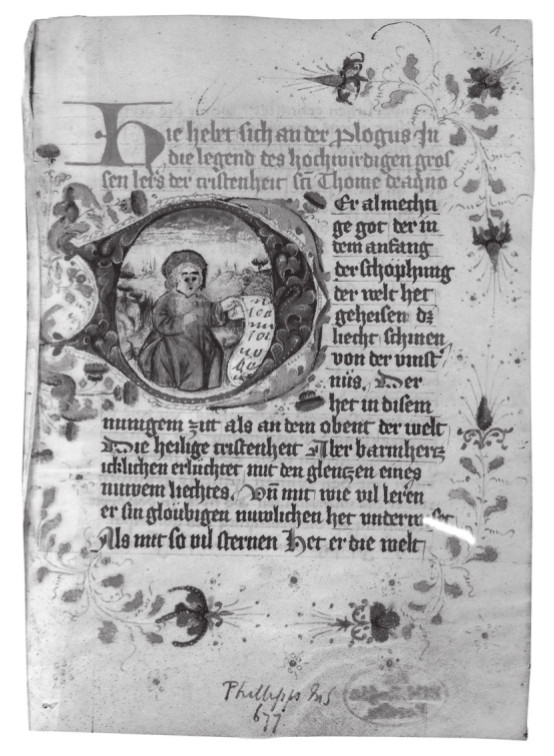 1
Hie hebt sich an der plogus In
die legend des hochwirdigen gros
sen lers der cristenheit sct̄ Thome deaqno
DEr almechti
ge got der in
dem anfang
der schöphung
der welt het
geheisen dz
liecht schinen
von der vinst
nüs, Der
het in disem
zit als an dem obent der welt
Die heilige cristenheit Aber barmhertz
icklichen erlüchtet mit den glentzen eines
nuwem liechtes. Vn̄ mit wie vil leren
er sin gloübigen nuwlichen het
Als mit so vil sternen Het er die welt
Phillipps MS
677